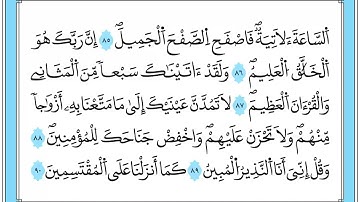 اَ۬لسَّاعَةَ ءَلَاتِيَةٞۖ فَاصْفَحِ اِ۬لصَّفْحَ اَ۬لْجَمِيلَۖ ٨٥ إِنَّ رَبَّكَ هُوَ
اَ۬لْخَلَّٰقُ اُ۬لْعَلِيمُۖ ٨٦ وَلَقَدَ اٰتَيْنَٰكَ سَبْعاٗ مِّنَ اَ۬لْمَثَانِے
وَالْقُرْءَانَ اَ۬لْعَظِيمَۖ ٨٧ لَا تَمُدَّنَّ عَيْنَيْكَ إِلَىٰ مَا مَتَّعْنَا بِهِۦٓ أَزْوَٰجاٗ
مِّنْهُمْۖ وَلَا تَحْزَنْ عَلَيْهِمْۖ وَاخْفِضْ جَنَاحَكَ لِلْمُؤْمِنِينَۖ ٨٨
وَقُلِ اِنِّيَ أَنَا اَ۬لنَّذِيرُ اُ۬لْمُبِينُۖ ٨٩ كَمَا أَنزَلْنَا عَلَى اَ۬لْمُقْتَسِمِينَ ٩٠